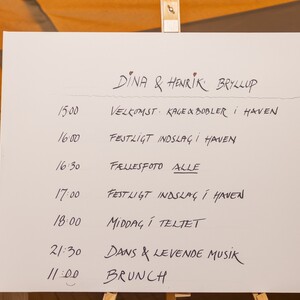 DINA & HENRIK BRYLLUP
15:00 VELKOMST · KAGE & BOBLER I HAVEN
16:00 FESTLIGT INDSLAG I HAVEN
16:30 FÆLLESFOTO ALLE
17:00 FESTLIGT INDSLAG I HAVEN
18:00 MIDDAG I TELTET
21:30 DANS & LEVENDE MUSIK
11:00 BRUNCH